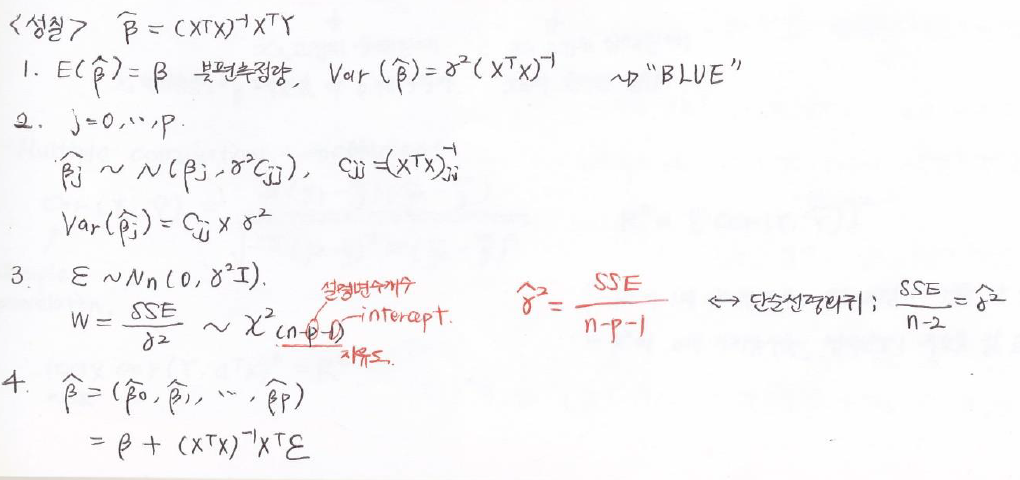 <성질> β̂ = (XᵀX)⁻¹XᵀY
1. E(β̂) = β 불편추정량, Var(β̂) = σ²(XᵀX)⁻¹ ⇝ "BLUE"
2. j=0,…,p.
β̂j ~ N(βj, σ²Cjj), Cjj = (XᵀX)⁻¹jj
Var(β̂j) = Cjj × σ²
3. ε ~ Nn(0, σ²I).
설명변수개수
W = SSE/σ² ~ χ²(n-p-1) intercept.
자유도.
σ̂² = SSE/(n-p-1) ↔ 단순선형회귀; SSE/(n-2) = σ̂²
4. β̂ = (β̂0, β̂1, …, β̂p)
= β + (XᵀX)⁻¹Xᵀε